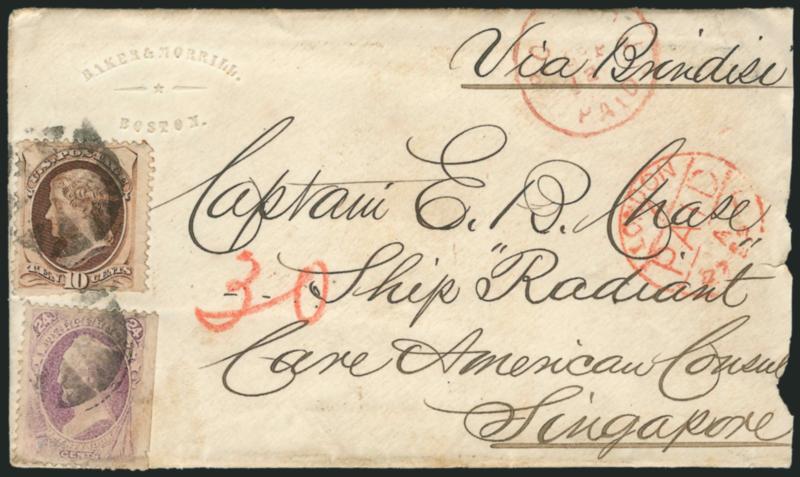 BAKER & MORRILL.
BOSTON.
Via Brindisi
PAID
LONDON
PAID
Captain E. B. Chase
Ship "Radiant"
Care American Consul
Singapore
30
U.S. POSTAGE
TEN 10 CENTS
24 24
CENTS